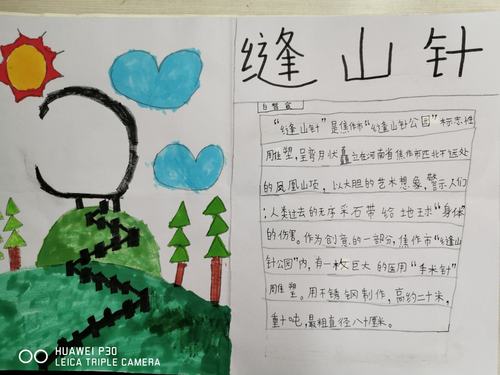 缝山针
"缝山针"是焦作市"缝山针公园"标志性
雕塑,呈弯月状矗立在河南省焦作市西北不远处
的凤凰山顶,以大胆的艺术想象,警示人们
:人类过去的无序采石带给地球"身体"
的伤害。作为创意的一部分,焦作市"缝山
针公园"内,有一枚巨大的医用"手术针"
雕塑。用不锈钢制作,高约二十米,
重十吨,最粗直径八十厘米。
HUAWEI P30
LEICA TRIPLE CAMERA